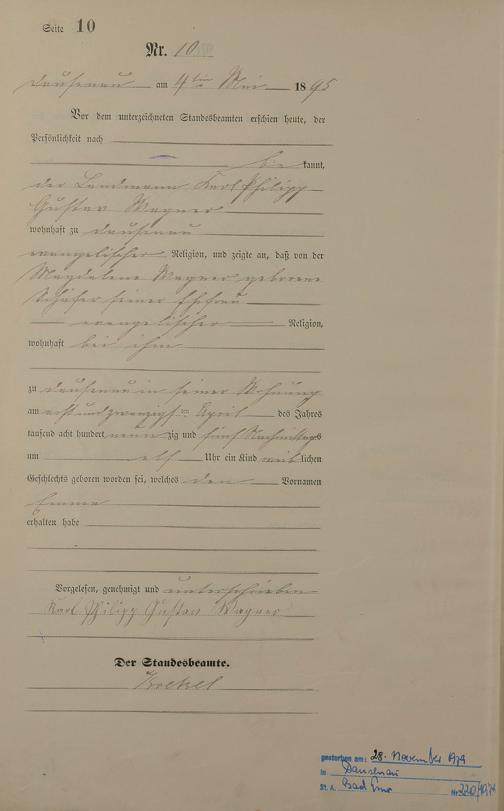 Seite 10
Nr. 10
Dausenau am 4ten Mai 1895
Vor dem unterzeichneten Standesbeamten erschien heute, der
Persönlichkeit nach
be kannt,
der Landmann Karl Philipp
Gustav Wagner
wohnhaft zu Dausenau
evangelischer Religion, und zeigte an, daß von der
Magdalene Wagner, geborene
Schäfer seiner Ehefrau
evangelischer Religion,
wohnhaft bei ihm
zu Dausenau in seiner Wohnung
am acht und zwanzigsten April des Jahres
tausend acht hundert neun zig und fünf Nachmittags
um elf Uhr ein Kind weib lichen
Geschlechts geboren worden sei, welches den Vornamen
Emma
erhalten habe
Vorgelesen, genehmigt und unterschrieben
Karl Philipp Gustav Wagner
Der Standesbeamte.
gestorben am: 28. November 1979
in Dausenau
St. A. Bad Ems Nr. 220/1979